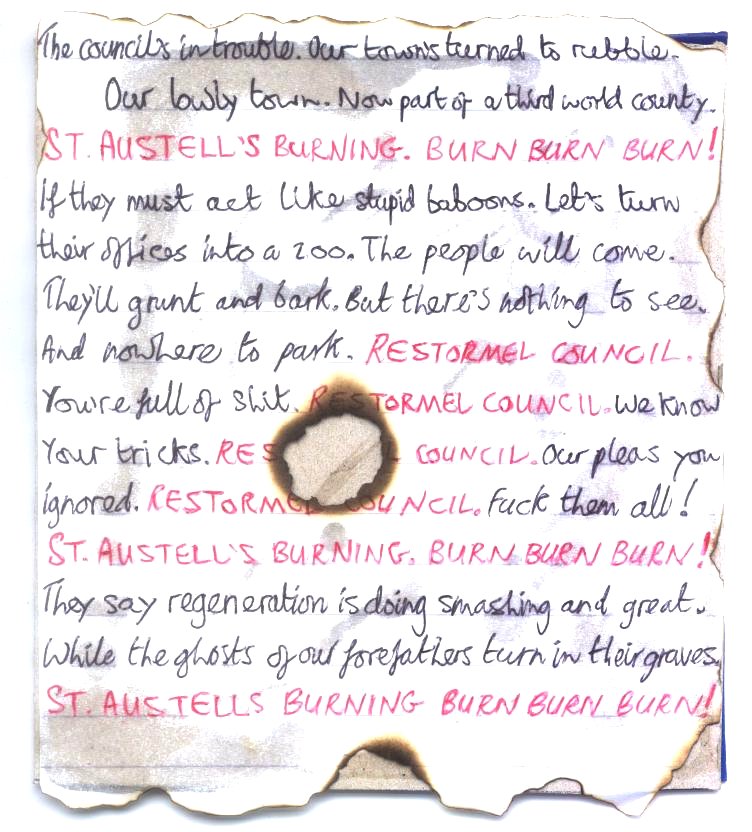 The council's in trouble. Our town's turned to rubble.
Our lowly town. Now part of a third world county.
ST. AUSTELL'S BURNING. BURN BURN BURN!
If they must act like stupid baboons. Let's turn
their offices into a zoo. The people will come.
They'll grunt and bark. But there's nothing to see.
And nowhere to park. RESTORMEL COUNCIL.
You're full of shit. RESTORMEL COUNCIL. We know
Your tricks. RES L COUNCIL. Our pleas you
ignored. RESTORMEL COUNCIL. Fuck them all!
ST. AUSTELL'S BURNING. BURN BURN BURN!
They say regeneration is doing smashing and great.
While the ghosts of our forefathers turn in their graves.
ST. AUSTELLS BURNING BURN BURN BURN!